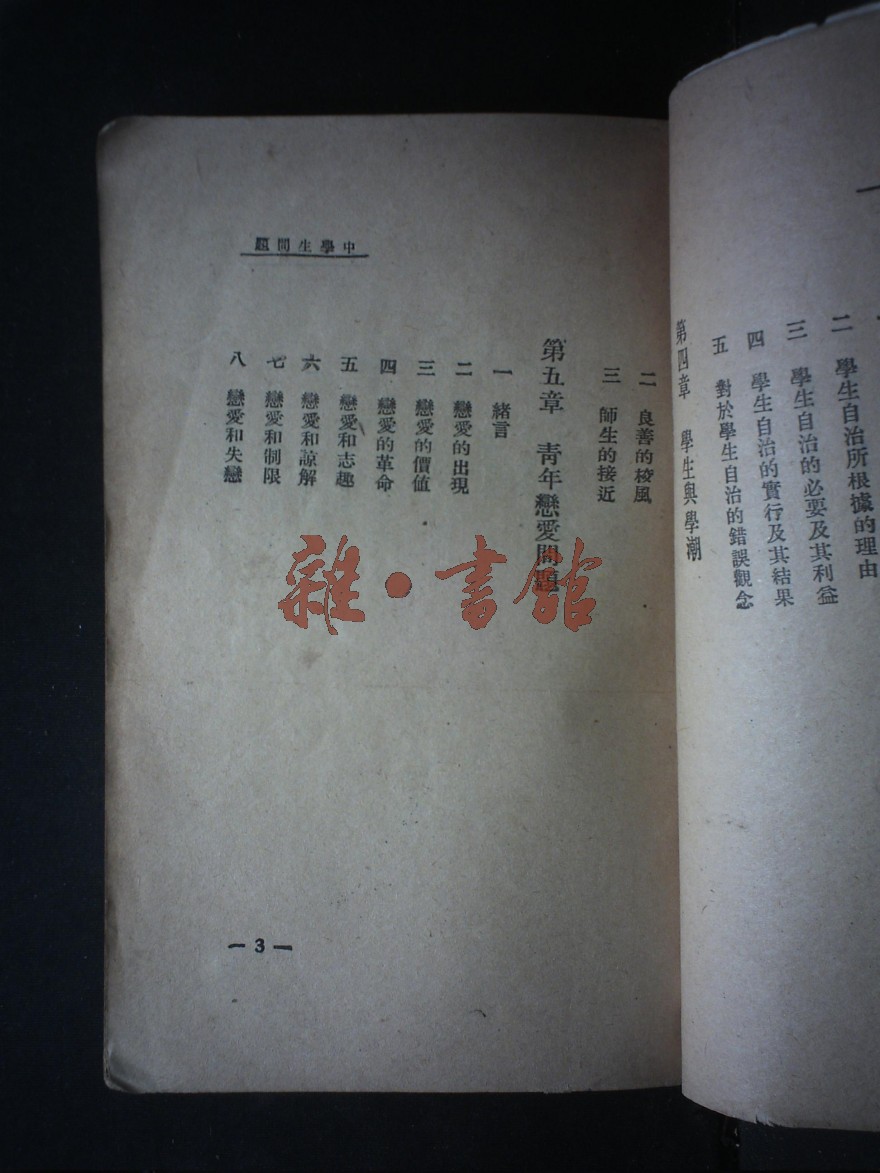 二 學生自治所根據的理由
三 學生自治的必要及其利益
四 學生自治的實行及其結果
五 對於學生自治的錯誤觀念
第四章 學生與學潮
中學生問題
二 良善的校風
三 師生的接近
第五章 青年戀愛問題
一 緒言
二 戀愛的出現
三 戀愛的價值
四 戀愛的革命
五 戀愛和志趣
六 戀愛和諒解
七 戀愛和制限
八 戀愛和失戀
— 3 —
雜·書館